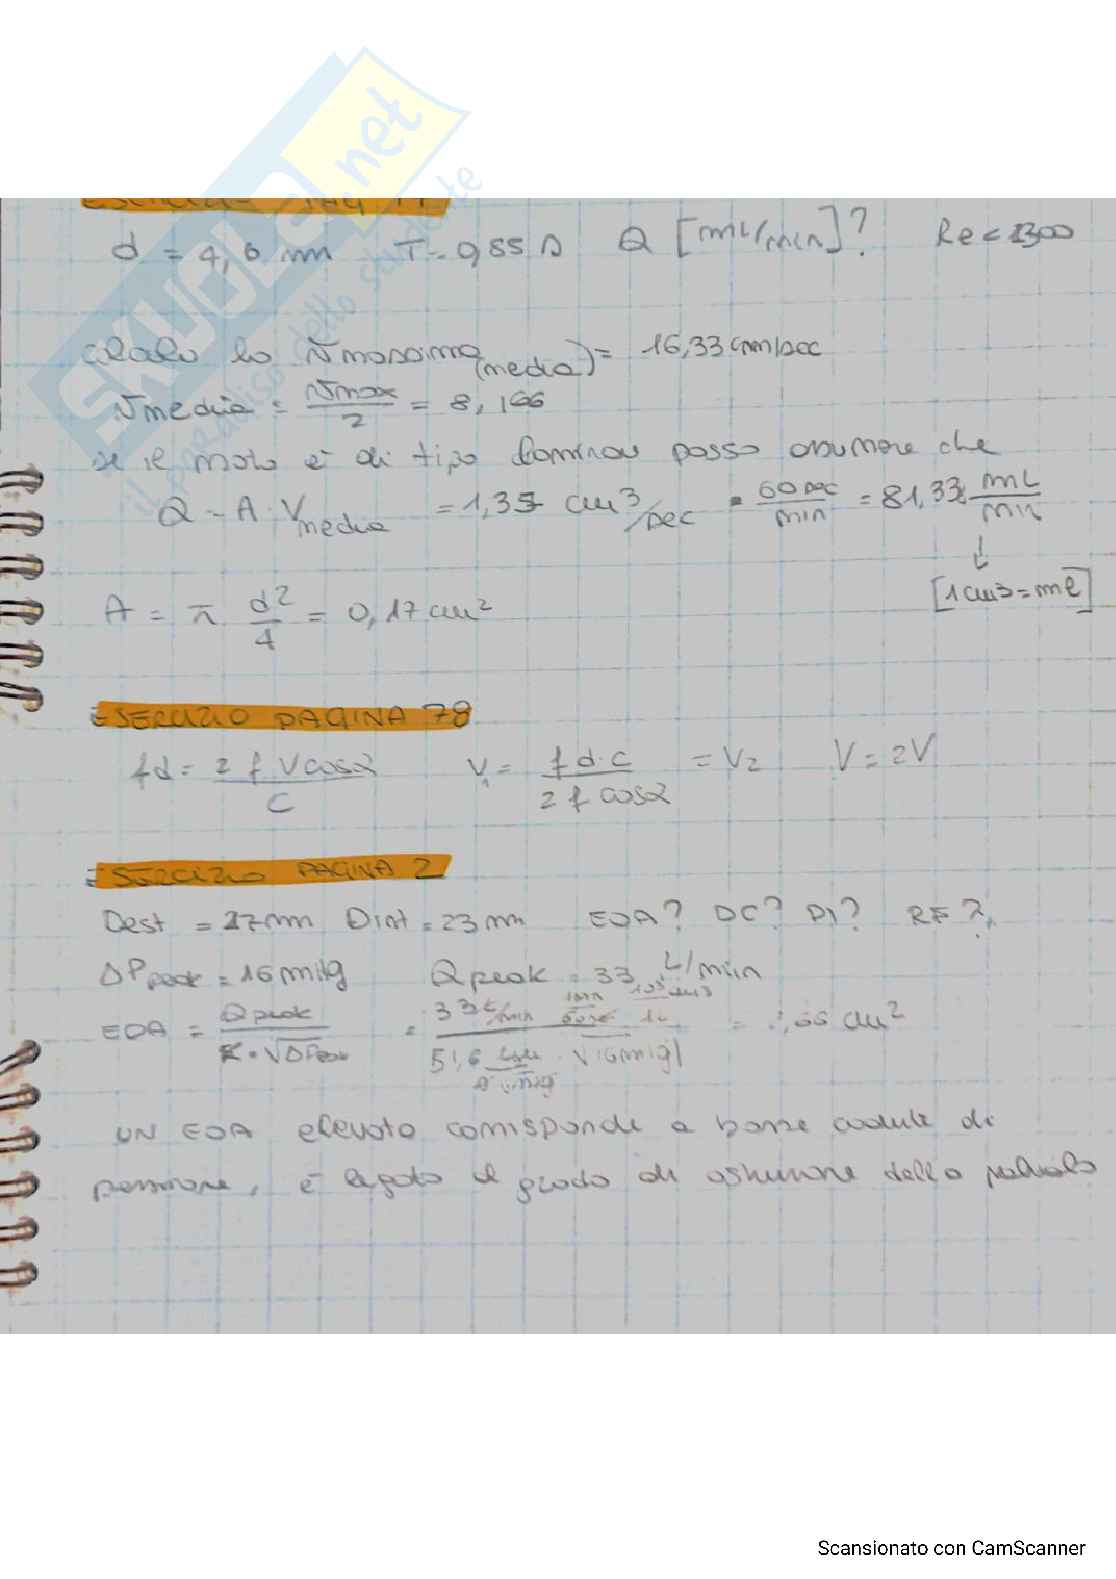 SKUOLA.net
il paradiso dello studente
ESERCIZIO PAG 77
d = 4,6 mm T = 0,85 s Q [mL/min]? Re < 2300
calcolo la vmassima (media) = 16,33 cm/sec
vmedia = vmax / 2 = 8,166
se il moto è di tipo laminare posso assumere che
Q = A · Vmedia = 1,35 cm³/sec · 60 sec / min = 81,33 mL / min
[1 cm³ = ml]
A = π d² / 4 = 0,17 cm²
ESERCIZIO PAGINA 78
fd = 2 f V cosα / C V = fd · c / 2 f cosα = V2 V = 2V
ESERCIZIO PAGINA 2
Dest = 27 mm Dint = 23 mm EOA? DC? PI? RF?
ΔPpeak = 16 mmHg Qpeak = 33 L/min
EOA = Qpeak / K · √ΔPpeak = 33 L/min / 51,6 · √16 mmHg = ,66 cm²
UN EOA elevato corrisponde a basse cadute di
pressione, è legato al grado di ostruzione della valvola
Scansionato con CamScanner